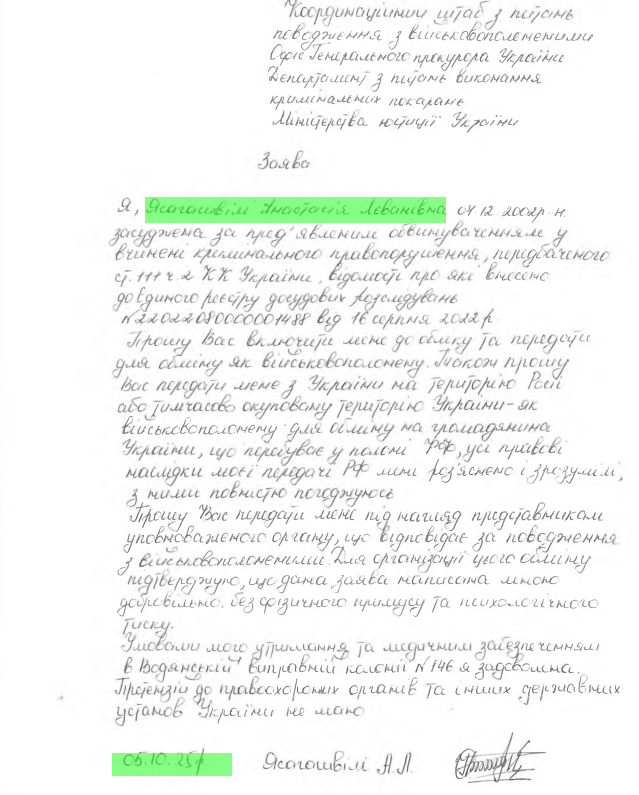 Координаційний штаб з питань
поводження з військовополоненими
Офіс Генерального прокурора України
Департамент з питань виконання
кримінальних покарань
Міністерства юстиції України
Заява
Я, Ясагашвілі Анастасія Леванівна 04.12.2002р.н.
засуджена за пред'явленим обвинуваченням у
вчинені кримінального правопорушення, передбаченого
ст.111 ч.2 КК України, відомості про які внесено
до Єдиного реєстру досудових розслідувань
№22022080000001488 від 16 серпня 2022р.
Прошу Вас включити мене до обліку та передати
для обміну як військовополонену. Також прошу
Вас передати мене з України на територію Росії
або тимчасово окуповану територію України - як
військовополонену для обміну на громадянина
України, що перебуває у полоні РФ, усі правові
наслідки моєї передачі РФ мені роз'яснено і зрозумілі,
з ними повністю погоджуюсь
Прошу Вас передати мене під нагляд представникам
уповноваженого органу, що відповідає за поводження
з військовополоненими. Для організації цього обміну
підтверджую, що дана заява написана мною
добровільно без фізичного примусу та психологічного
тиску.
Умовами мого утримання та медичним забезпеченням
в Водянській виправній колонії №146 я задоволена.
Претензій до правоохоронних органів та інших державних
установ України не маю
05.10.25р Ясагашвілі А.Л.